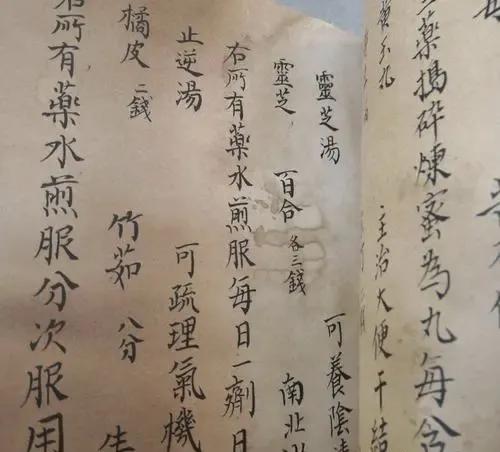 藥搗碎煉蜜為丸每
主治大便干結
靈芝湯 可養陰
靈芝 百合 各三錢 南北
右所有藥水煎服每日一劑日
止逆湯 可疏理氣機
橘皮 二錢 竹茹 八分 生
右所有藥水煎服分次服用